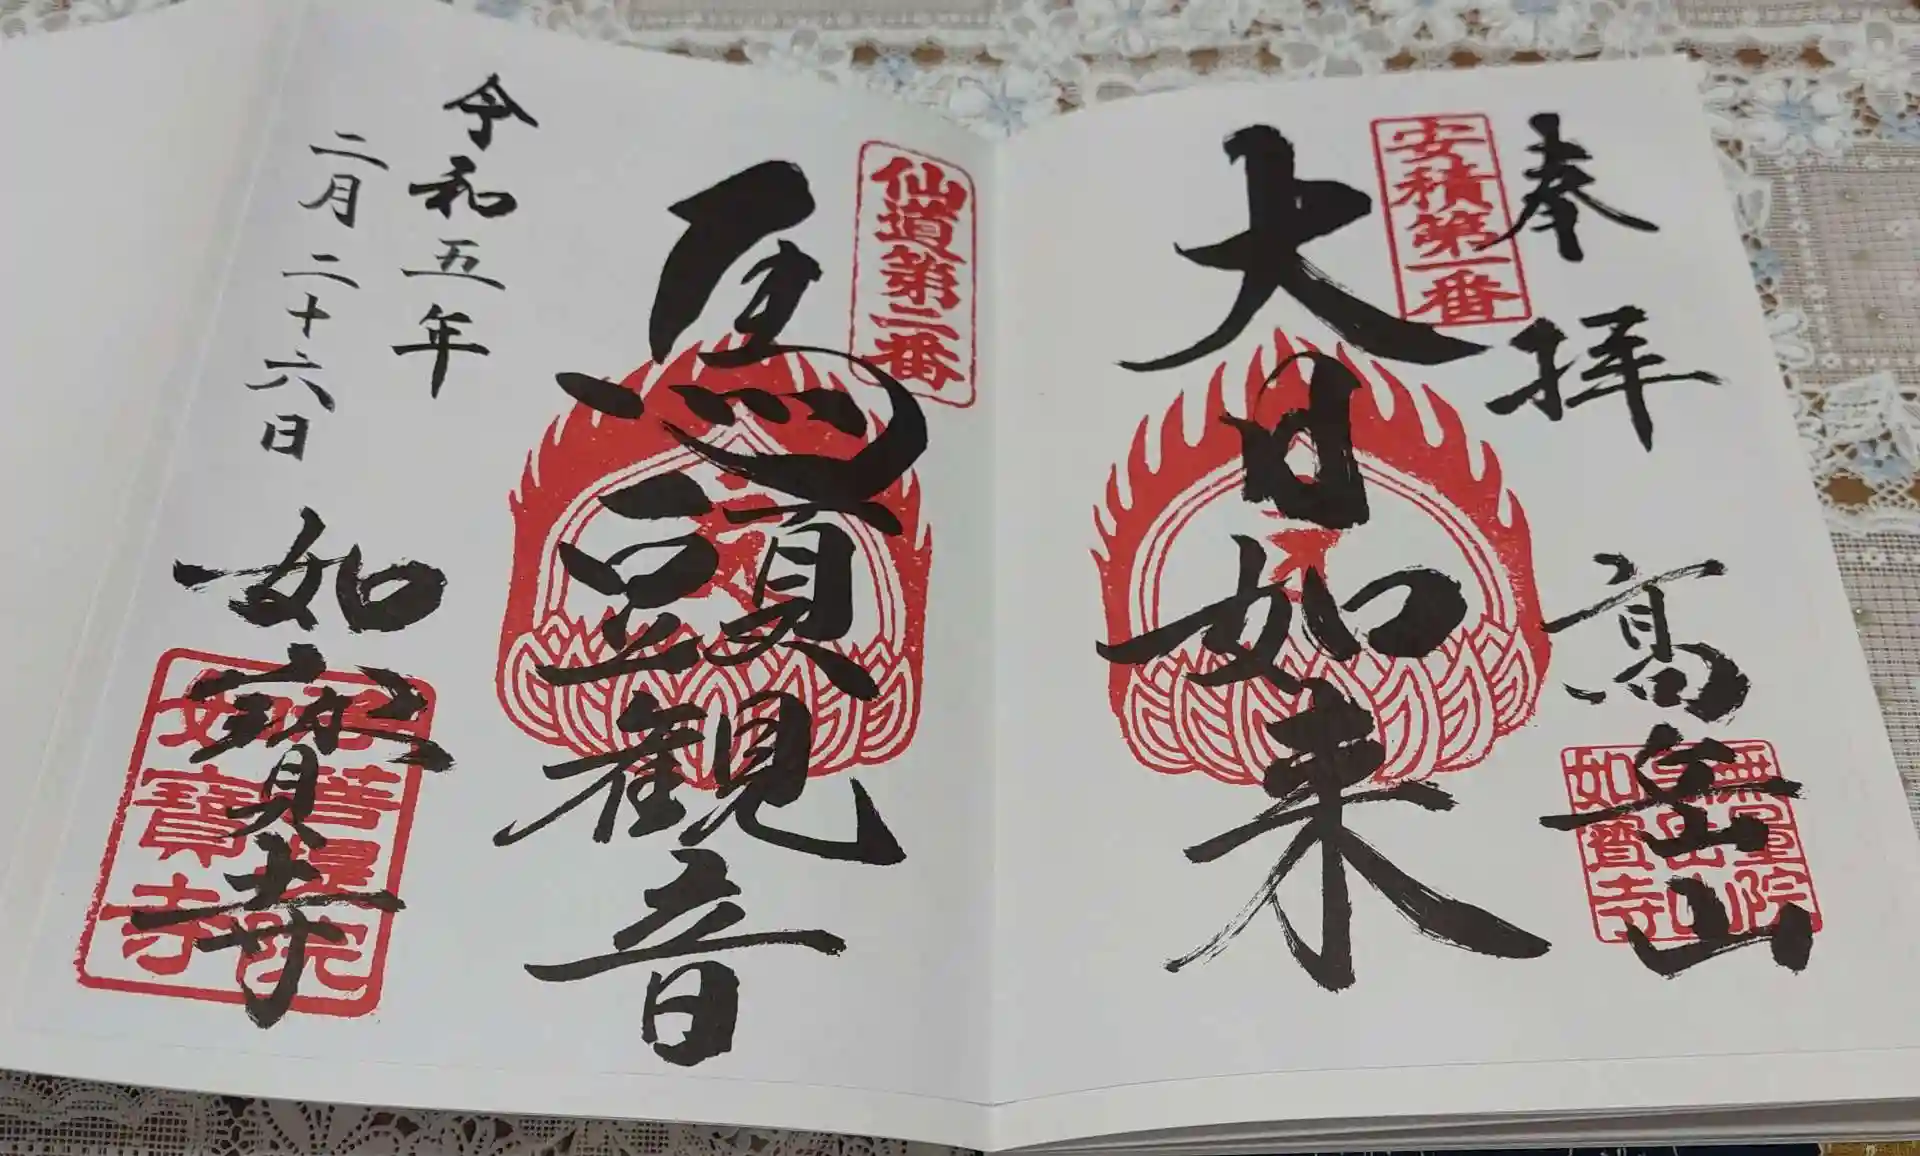 奉拝
高岳山
無量院
如寳寺
安積第一番
大日如来
仙道第二番
馬頭観音
令和五年
二月二十六日
如寳寺
菩提院
如寳寺